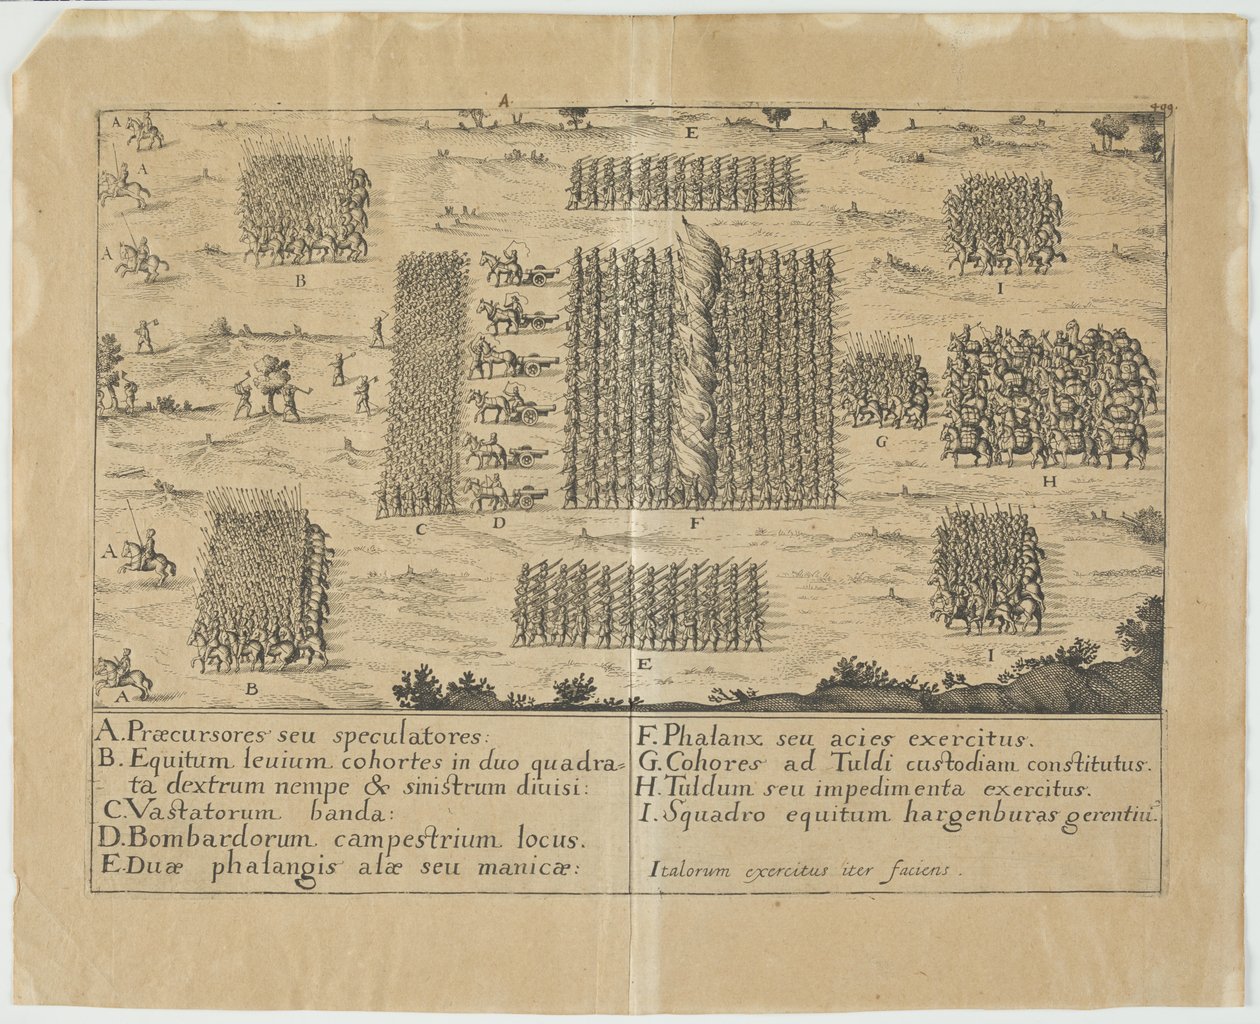 A
499.
319
A
E
A
I
A
B
I
G
H
C
D
F
A
I
E
B
A
A. Præcursores seu speculatores:
B. Equitum leuium cohortes in duo quadra=
ta dextrum nempe & sinistrum diuisi:
C. Vastatorum banda:
D. Bombardorum campestrium locus.
E. Duæ phalangis alæ seu manicæ:
F. Phalanx seu acies exercitus.
G. Cohores ad Tuldi custodiam constitutus.
H. Tuldum seu impedimenta exercitus.
I. Squadro equitum hargenburas gerentiũ.
Italorum exercitus iter faciens.